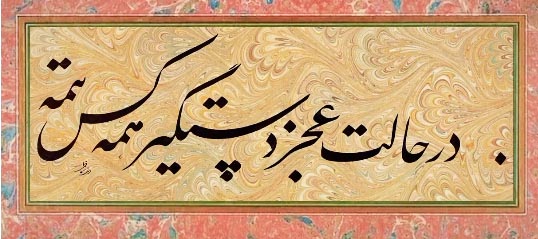 در حالت عجز دستگیر همه کس